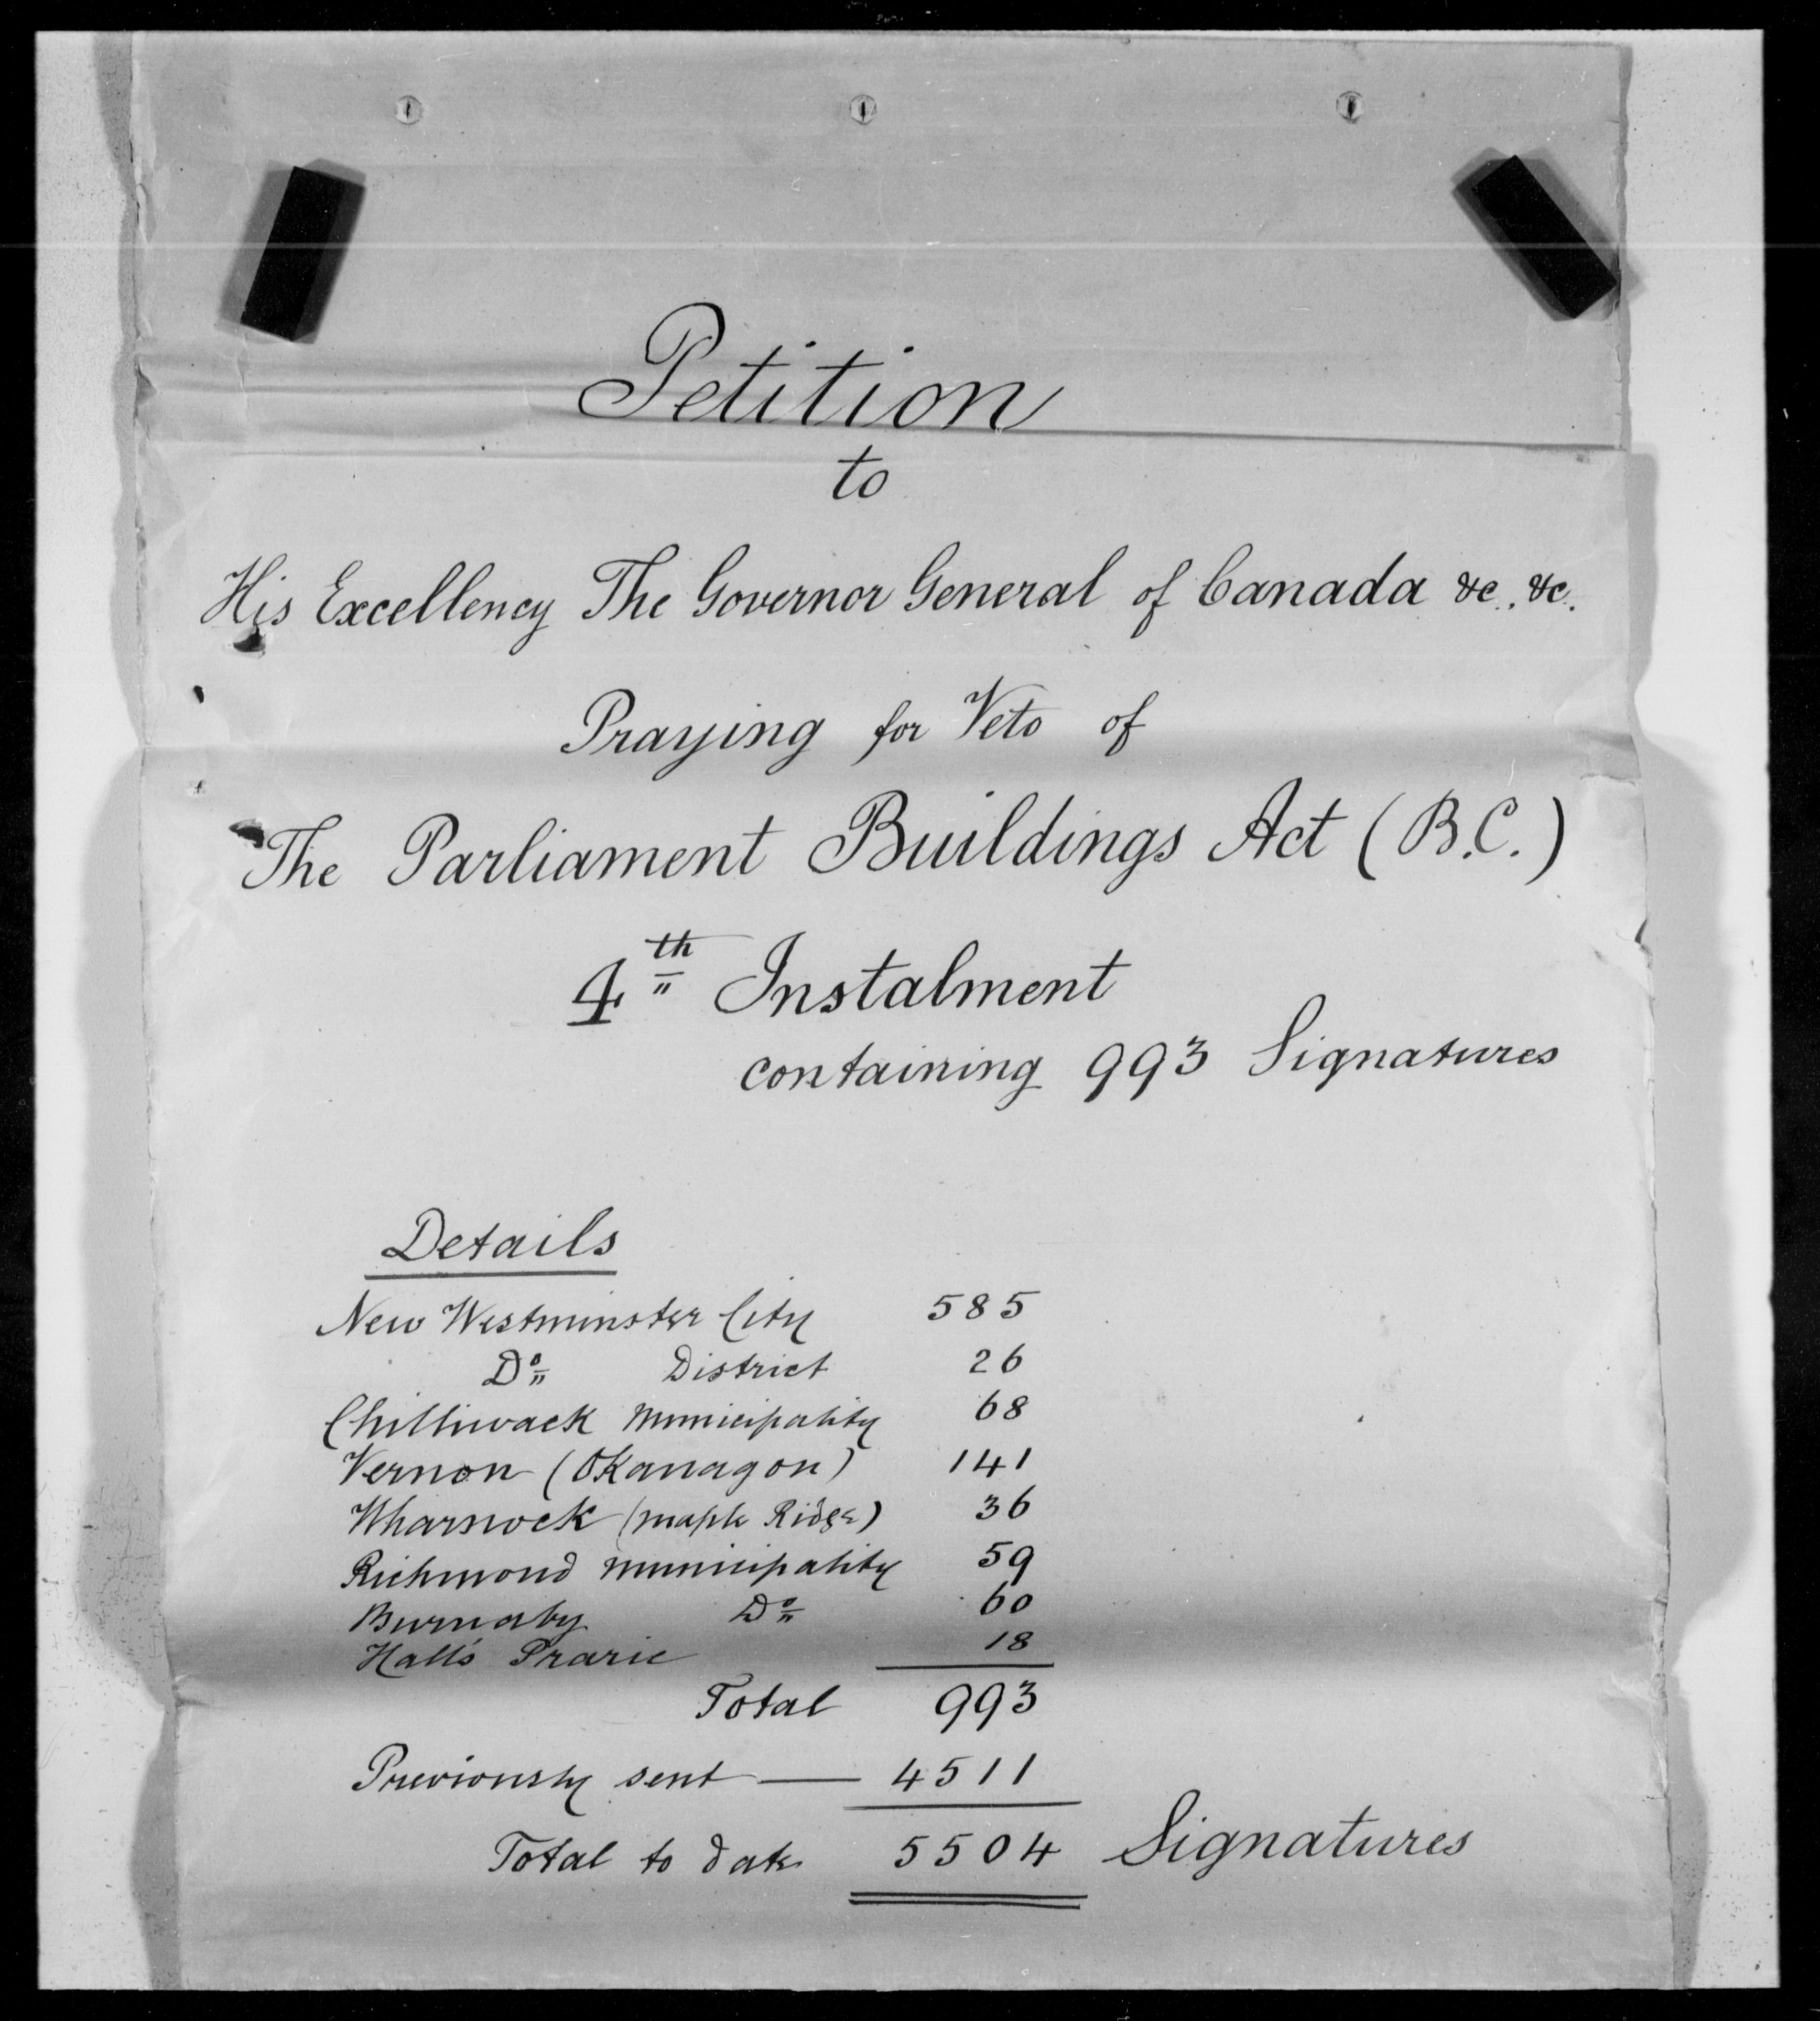 Petition
to
His Excellency The Governor General of Canada &c. &c.
Praying for Veto of
The Parliament Buildings Act (B.C.)
4th Instalment
containing 993 Signatures
Details
New Westminster City 585
Do District 26
Chilliwack Municipality 68
Vernon (Okanagon) 141
Wharnock (Maple Ridge) 36
Richmond Municipality 59
Burnaby Do 60
Hall's Prarie 18
Total 993
Previously sent — 4511
Total to date 5504 Signatures